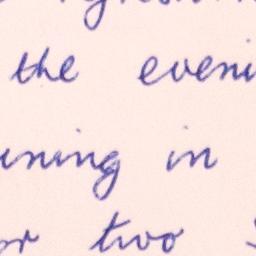 the eveni
ning in
or two